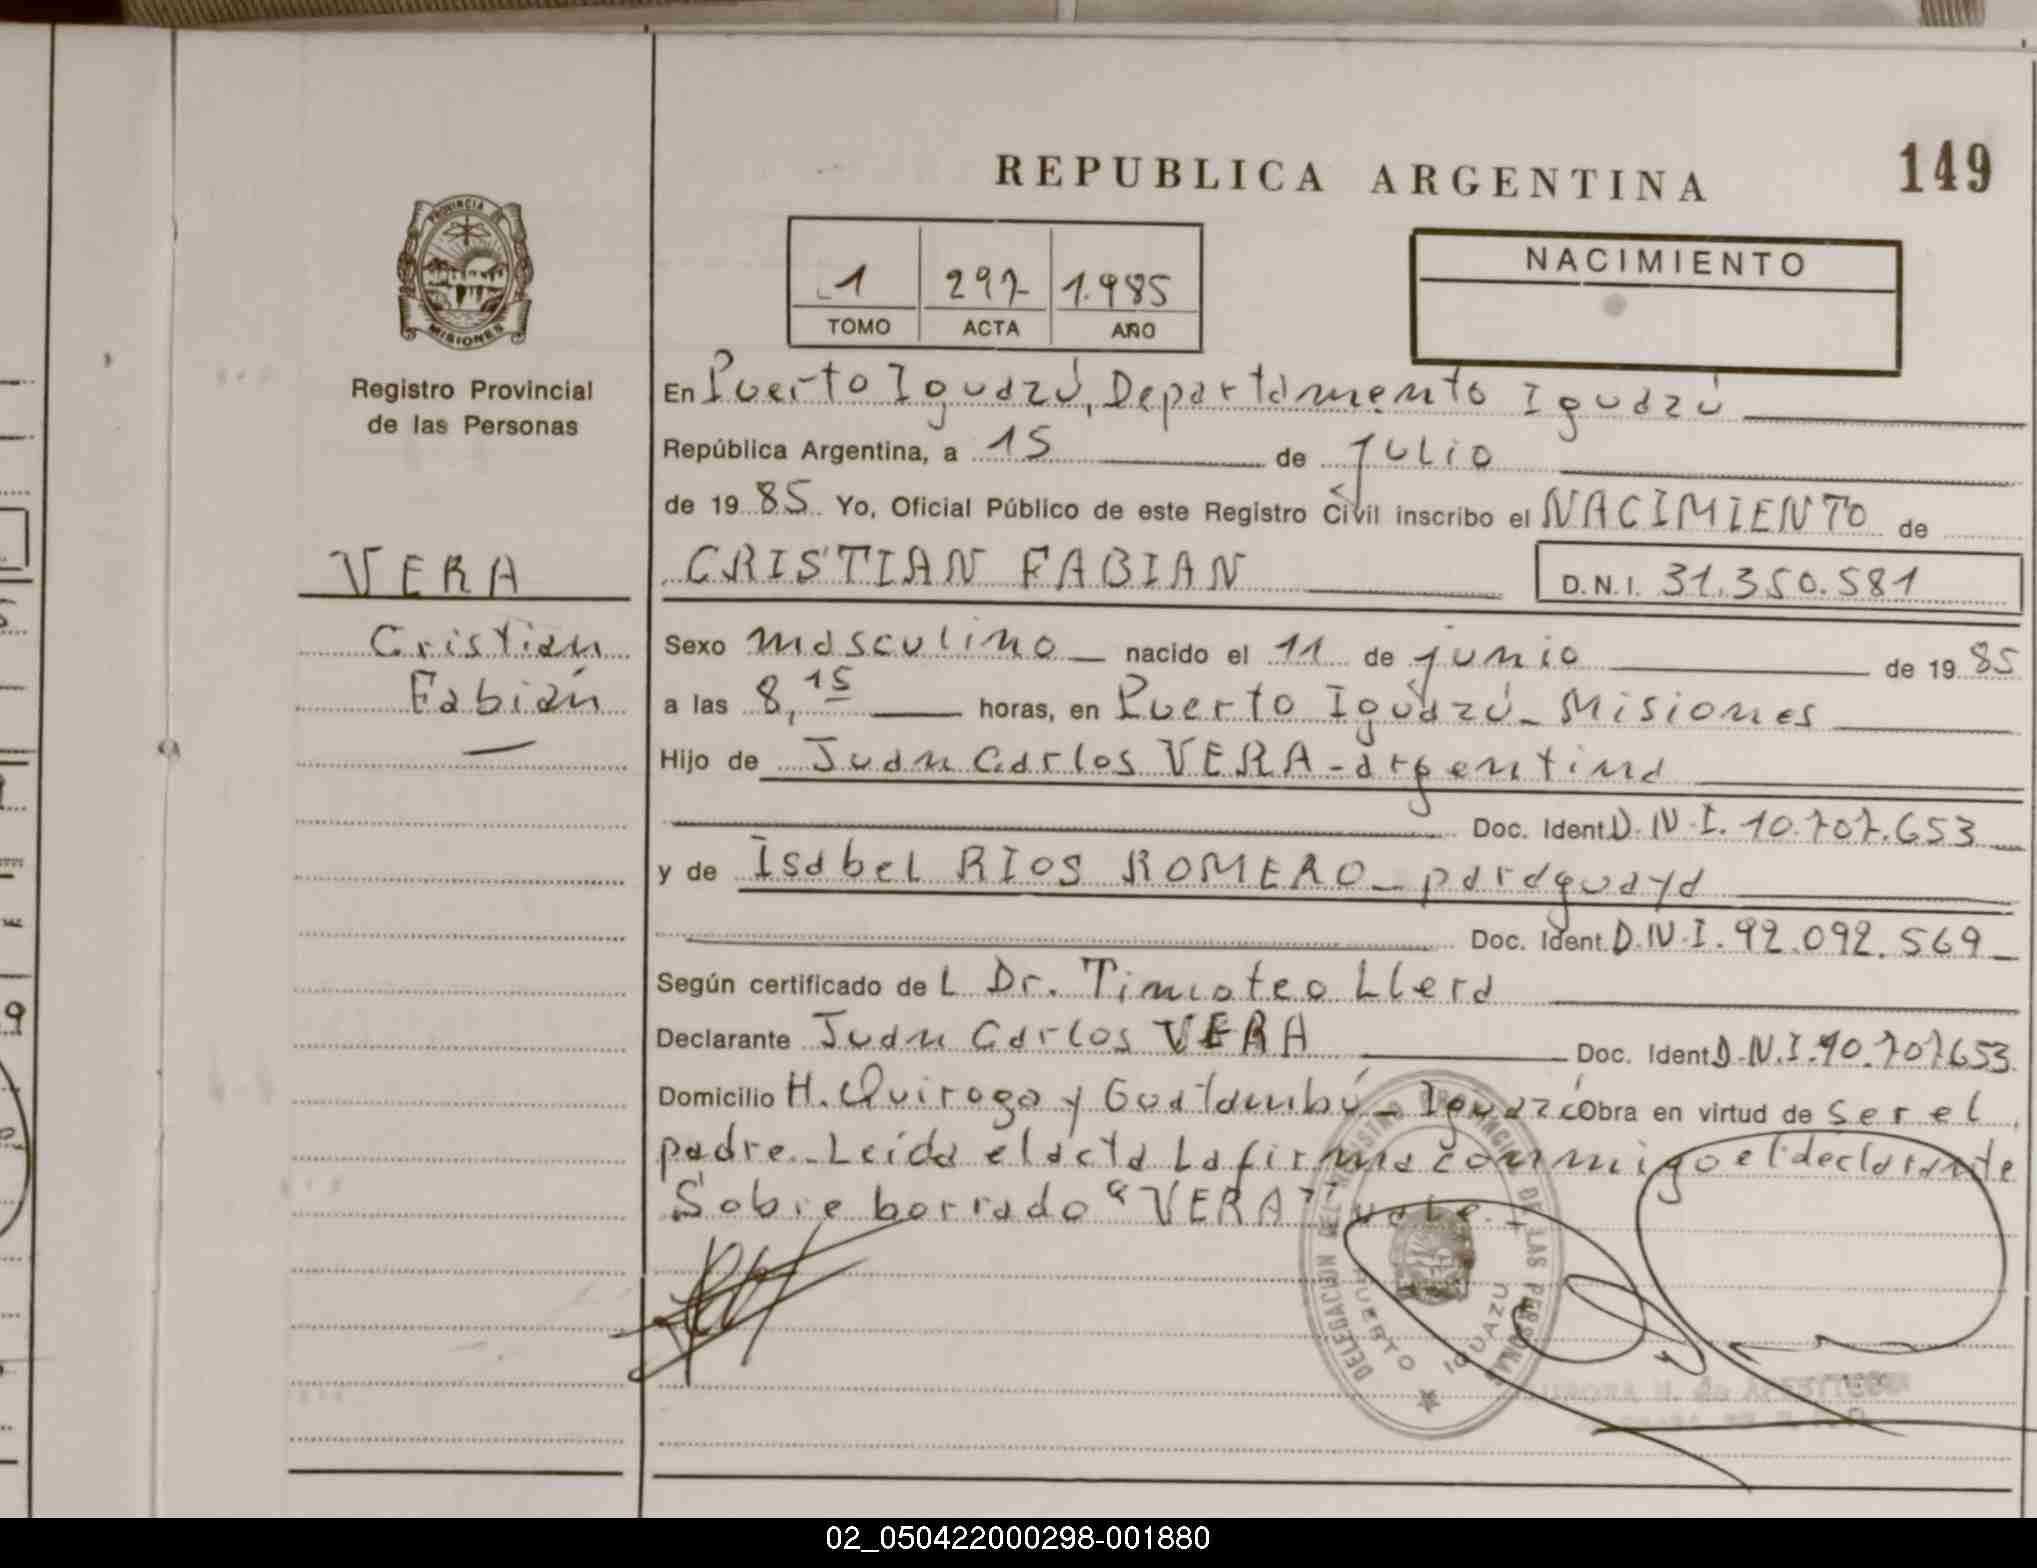 REPUBLICA ARGENTINA
149
PROVINCIA DE
MISIONES
Registro Provincial
de las Personas
1 297 1.985
TOMO ACTA AÑO
NACIMIENTO
En Puerto Iguazú, Departamento Iguazú
República Argentina, a 15 de julio
de 19 85 Yo, Oficial Público de este Registro Civil inscribo el NACIMIENTO de
VERA
CRISTIAN FABIAN D.N.I. 31.350.581
Cristian
Fabián
Sexo masculino nacido el 11 de junio de 19 85
a las 8,15 horas, en Puerto Iguazú - Misiones
Hijo de Juan Carlos VERA - argentina
Doc. Ident. D.N.I. 10.707.653
y de Isabel RIOS ROMERO - paraguaya
Doc. Ident. D.N.I. 92.092.569
Según certificado de L Dr. Timoteo Llera
Declarante Juan Carlos VERA Doc. Ident. D.N.I. 10.707.653
Domicilio H. Quiroga y Guatambú - Iguazú Obra en virtud de ser el
padre.- Leída el acta La firma conmigo el declarante
Sobre borrado "VERA" vale.-
DELEGACION DEL REGISTRO PROVINCIAL DE LAS PERSONAS
PUERTO IGUAZU
02_050422000298-001880